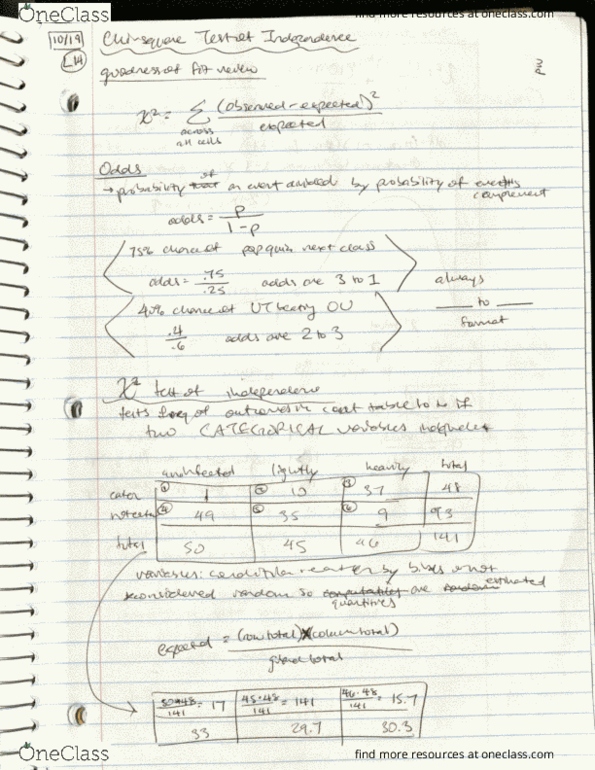 OneClass
find more resources at oneclass.com
10/19
L14
Chi-square Test of Independence
goodness of fit review
X² = Σ (observed-expected)² / expected
across all cells
Odds
→ probability of an event divided by probability of events complement
odds = p / 1-p
75% chance of pop quiz next class
odds = .75 / .25 odds are 3 to 1
always
___ to ___
format
40% chance of UT beating OU
.4 / .6 odds are 2 to 3
X² test of independence
tests freq of outcomes in cont table to see if
two CATEGORICAL variables independent
uninfected lightly heavily total
eaten ① 1 ② 10 ③ 37 48
not eaten ④ 49 ⑤ 35 ⑥ 9 93
total 50 45 46 141
variables: condition + eaten by birds or not
considered random so are estimated
quantities
expected = (row total)x(column total) / grand total
50•48 / 141 = 17 45•48 / 141 = 141 46•48 / 141 = 15.7
33 29.7 30.3
OneClass
find more resources at oneclass.com